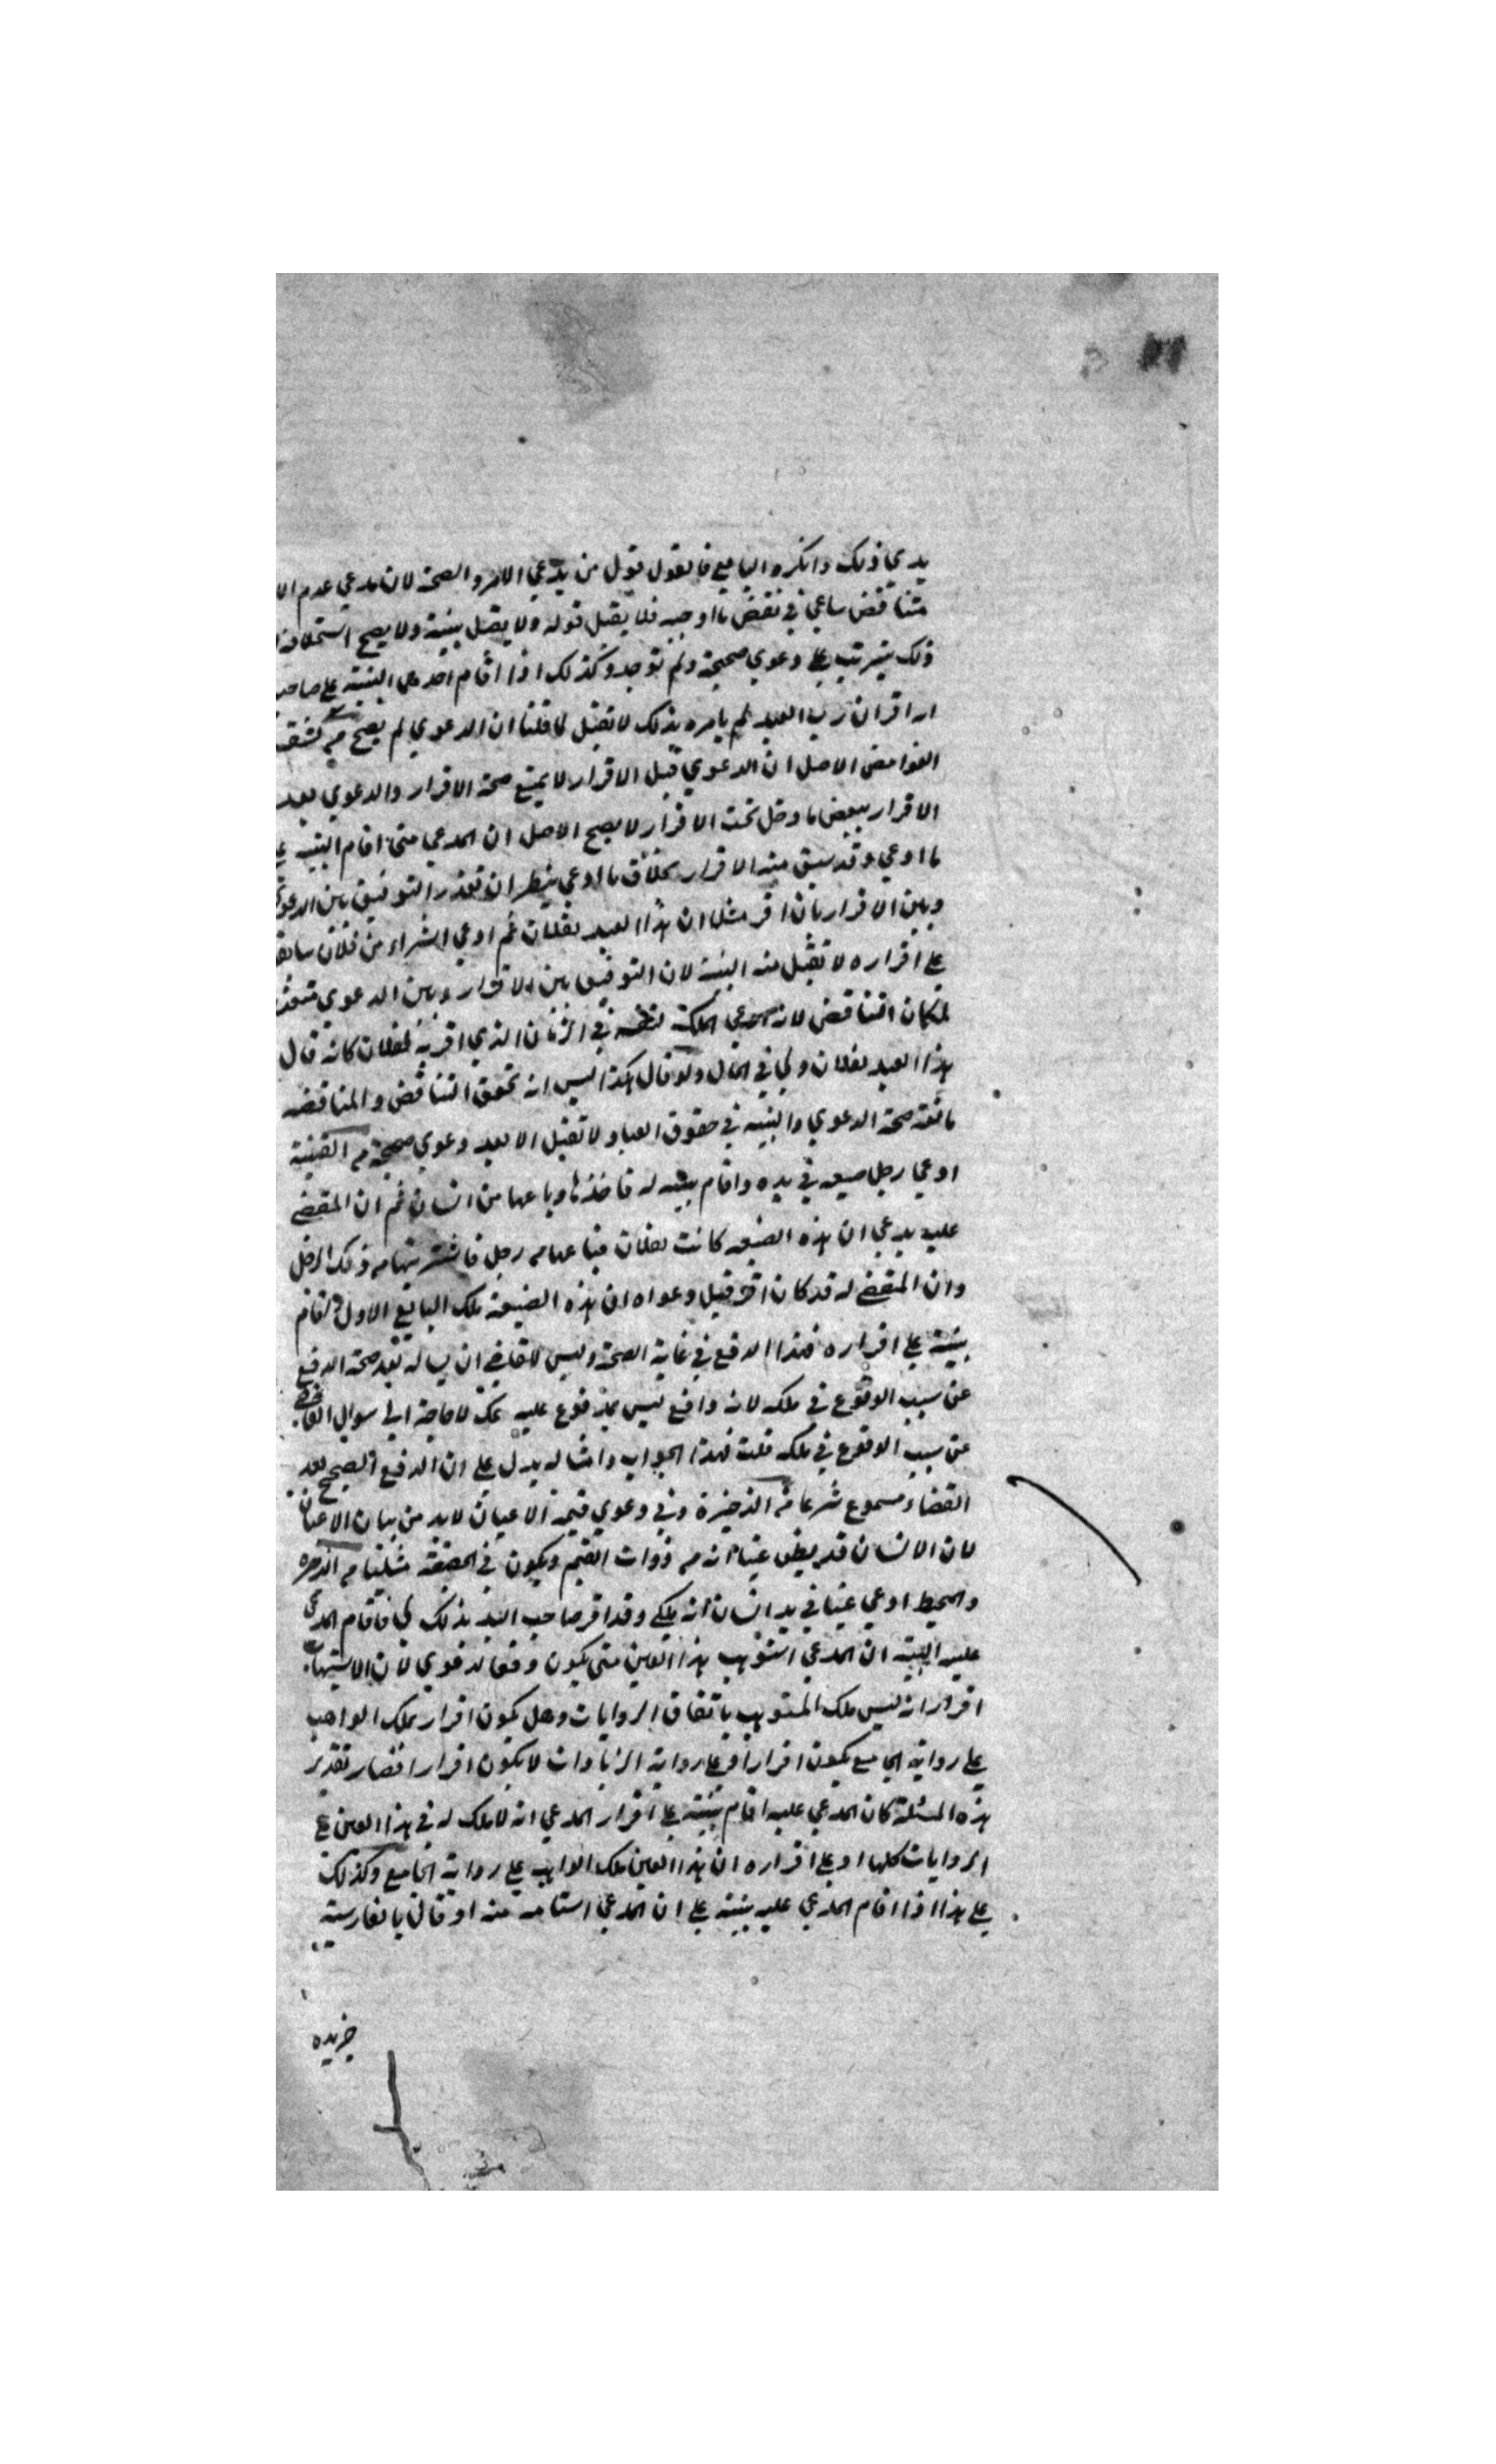 يدعي ذلك وانكره البايع فالقول قول من يدعي الامر والصحة لان مدعي عدم الا
متناقض ساعي في نقض ما اوجبه فلا يقبل قوله ولا يقبل بينته ولا يصح استحلافه
ذلك يترتب على دعوي صحيحة ولم توجد وكذلك اذا اقام احدهما البينة على صاحبه
انه اقر ان رب العبد لم يامره بذلك لا تقبل لما قلنا ان الدعوي لم يصح من كشف
الغوامض الاصل ان الدعوي قبل الاقرار لا يمنع صحة الاقرار والدعوي بعد
الاقرار ببعض ما دخل تحت الاقرار لا يصح الاصل ان المدعي متى اقام البينة على
ما ادعي وقد سبق منه الاقرار بخلاف ما ادعي ينظر ان تعذر التوفيق بين الدعوي
وبين الاقرار بان اقر مثلا ان هذا العبد لفلان ثم ادعي الشراء من فلان سابقا
على اقراره لا تقبل منه البينة لان التوفيق بين الاقرار وبين الدعوي متعذر
لمكان التناقض لانه يدعي الملك لنفسه في الزمان الذي اقر به لفلان كانه قال
هذا العبد لفلان ولي في الحال ولو قال هكذا اليس انه تحقق التناقض والمناقضه
مانعة صحة الدعوي والبينه في حقوق العباد لا تقبل الا بعد دعوي صحيحة من القنية
ادعي رجل ضيعه في يده واقام بينه له فاخذها وباعها من انسان ثم ان المقضي
عليه يدعي ان هذه الضيعه كانت لفلان فباعها من رجل فاشتريتها من ذلك الرجل
وان المقضي له قد كان اقر قبل دعواه ان هذه الضيعة ملك البايع الاول واقام
بينة على اقراره فهذا الدفع في غاية الصحة وليس للقاضي ان يساله بعد صحة الدفع
عن سبب الوقوع في ملكه لانه دافع ليس بمدفوع عليه عك لا حاجة الى سوال القاضي
عن سبب الوقوع في ملكه قلت فهذا الجواب وامثاله يدل على ان الدفع الصحيح بعد
القضاء مسموع شرعا من الذخيرة وفي دعوي قيمة الاعيان لا بد من بيان الاعيان
لان الانسان قد يظن عينا انه من ذوات القيم ويكون في الحقيقة مثليا من الذخيره
والمحيط ادعي عينا في يد انسان انه ملكي وقد اقر صاحب اليد بذلك لي فاقام المدعي
عليه البينه ان المدعي استوهب هذا العين متى يكون دفعا لدعوي لان الاستيهاب
اقرار انه ليس ملك المستوهب باتفاق الروايات وهل يكون اقرار بملك الواهب
على رواية الجامع يكون اقرارا وعلى رواية الزيادات لا يكون اقرارا فصار تقدير
هذه المسئلة كان المدعي عليه اقام بينة على اقرار المدعي انه لا ملك له في هذا العين على
الروايات كلها او على اقراره ان هذا العين ملك الواهب على رواية الجامع وكذلك
على هذا اذا اقام المدعي عليه بينة على ان المدعي استامه منه او قال بالفارسية
خريده